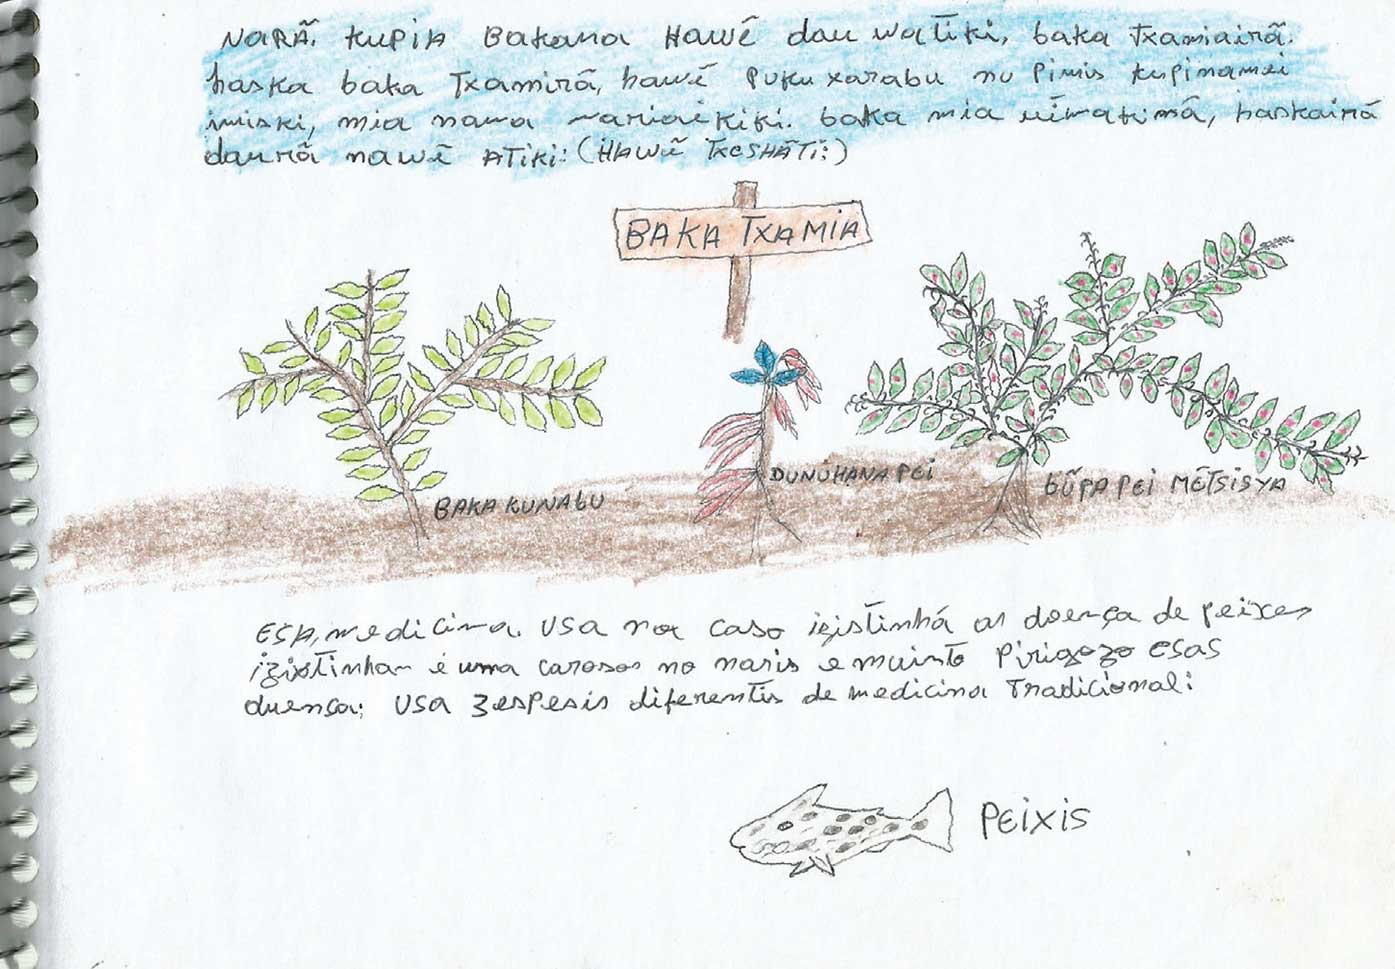 NARÃ. KUPIA BAKANA HAWẼ dau watiki, baka Txamiairã.
haska baka Txamirã, hawẽ PUKU xarabu nu Pimis Kupinamei
imiski, mia nama kiki. baka mia haskairã
daurã nawẽ ATiKi: (HAWẼ TXESHÃTi:)
BAKA TXAMIA
BAKA KUNABU
DUNUHANA PEI
BŨPA PEI MẼTSISYA
ESA, medicina. USA nor caso izistinhá as doença de peixes
izixtinhan é uma carosos no naris e muinto Pirigozo esas
duença; USA 3 espesis diferentis de medicina Tradicional:
PEIXIS